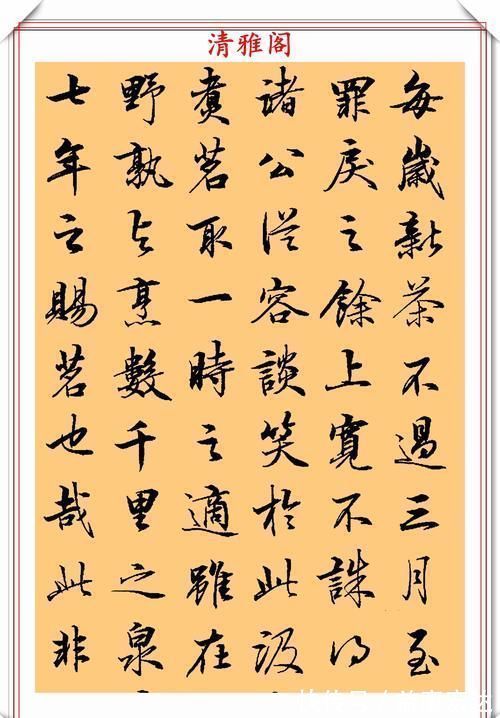 清雅阁
每歲新茶不過三月至
罪戾之餘上寬不誅得
諸公從容談笑於此汲
煮茗取一時之適雖在
野孰与烹數千里之泉
七年之賜茗也哉此非